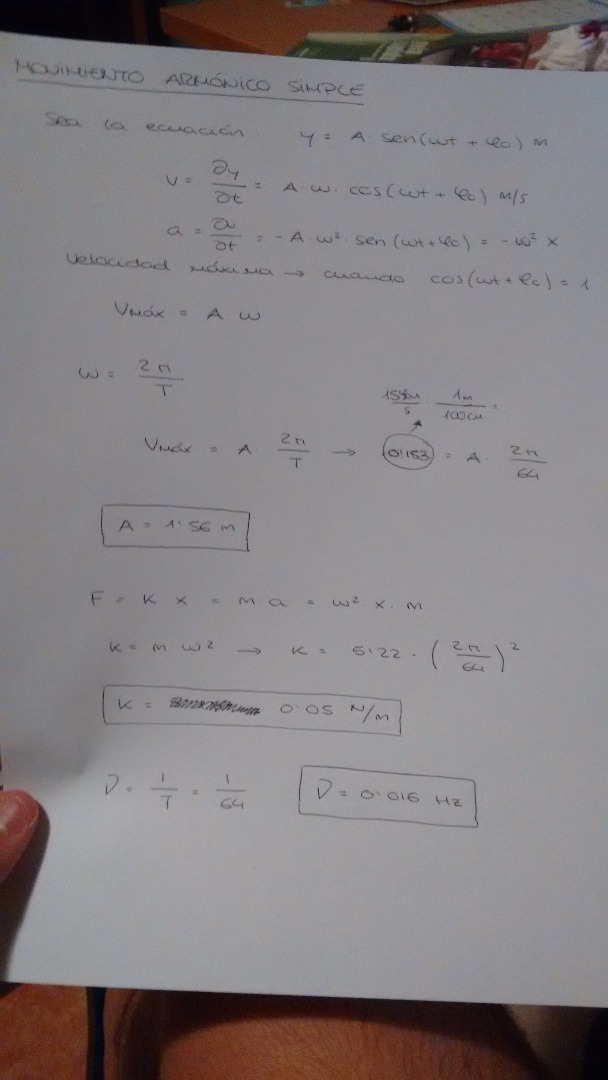 MOVIMIENTO ARMÓNICO SIMPLE
Sea la ecuación: y = A · sen(ωt + φ0) m
v = ∂y/∂t = A · ω · cos(ωt + φ0) m/s
a = ∂v/∂t = -A · ω² · sen(ωt + φ0) = -ω² x
Velocidad máxima → cuando cos(ωt + φ0) = 1
Vmáx = A · ω
ω = 2π/T
1m/100cm =
Vmáx = A 2π/T → 0'153 = A · 2π/64
A = 1'56 m
F = K x = m · a = ω² · x · m
K = m · ω² → K = 5'22 · (2π/64)²
K = 0'05 N/m
ν = 1/T = 1/64
ν = 0'016 Hz